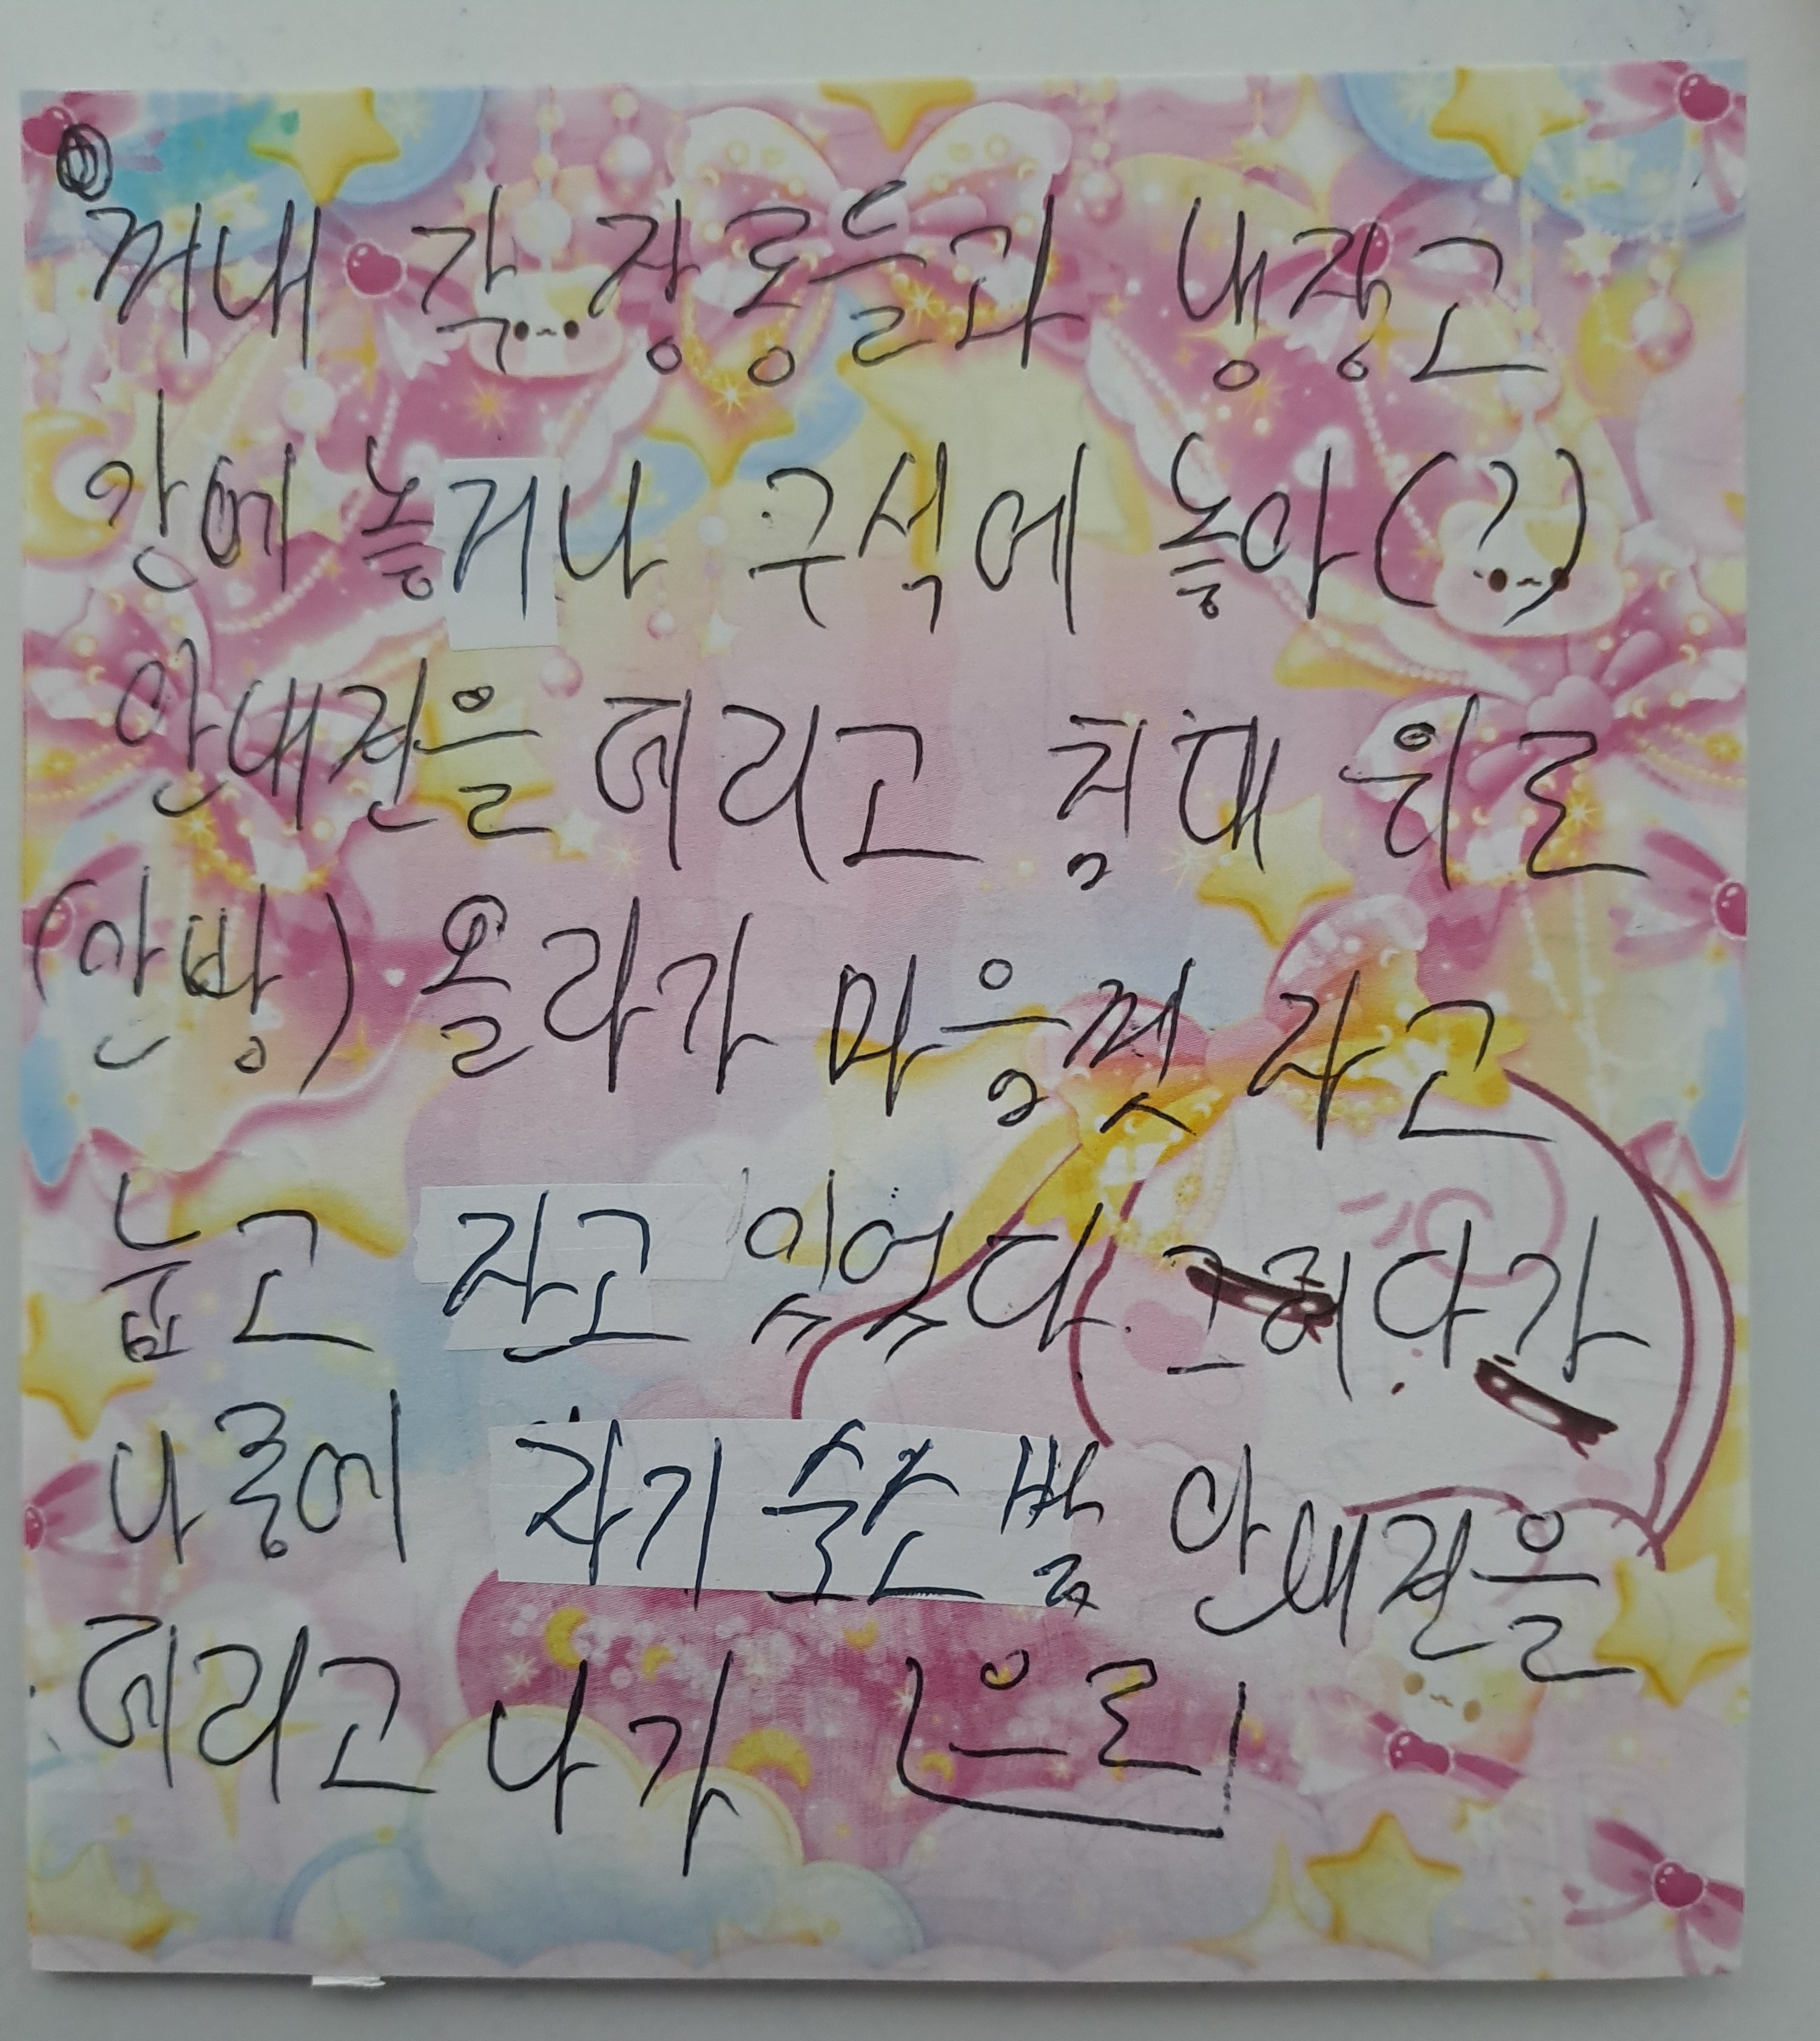 꺼내 각 장롱들과 냉장고
안에 놓거나 구석에 놓아(?)
안내견을 데리고 침대 위로
(안방) 올라가 마음껏 자고
눕고 자고 있었다. 그러다가
나중에 자기 안내견을
데리고 나가 (으로)